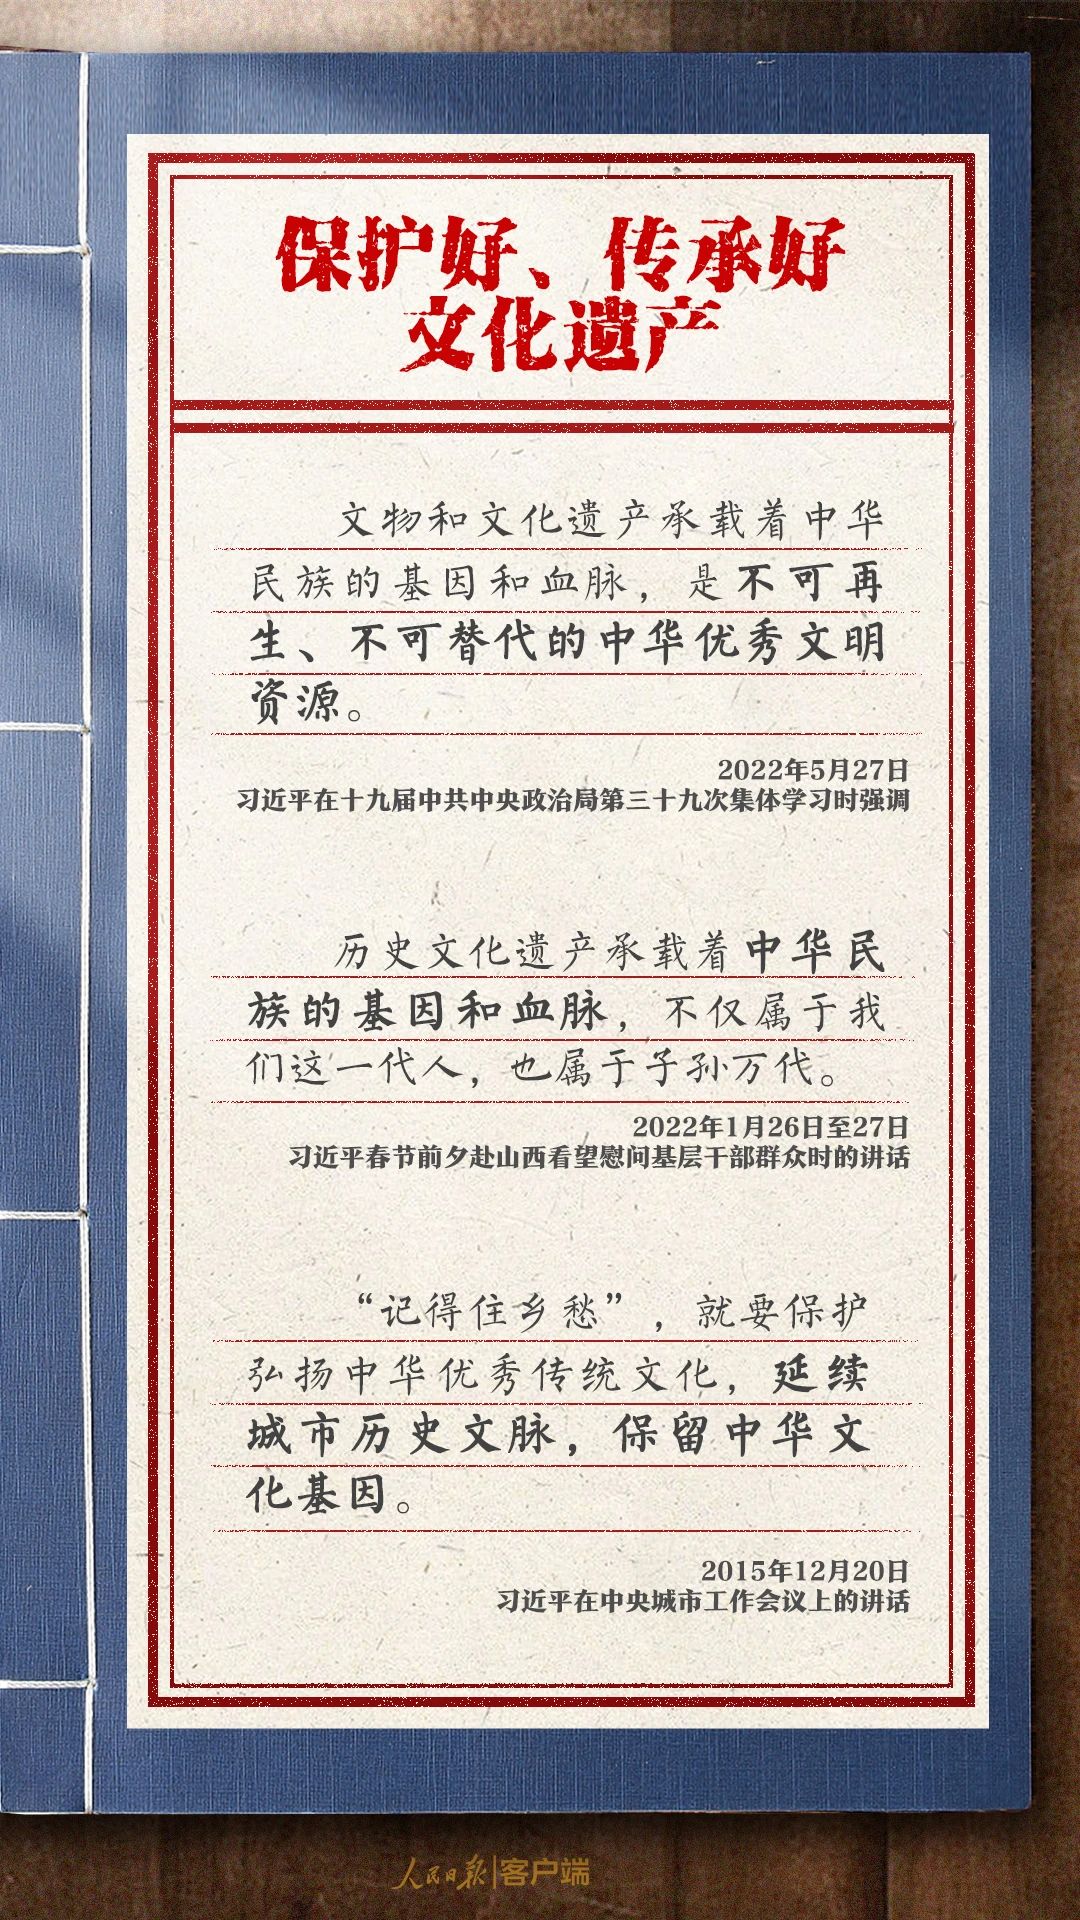 保护好、传承好
文化遗产
文物和文化遗产承载着中华
民族的基因和血脉，是不可再
生、不可替代的中华优秀文明
资源。
2022年5月27日
习近平在十九届中共中央政治局第三十九次集体学习时强调
历史文化遗产承载着中华民
族的基因和血脉，不仅属于我
们这一代人，也属于子孙万代。
2022年1月26日至27日
习近平春节前夕赴山西看望慰问基层干部群众时的讲话
“记得住乡愁”，就要保护
弘扬中华优秀传统文化，延续
城市历史文脉，保留中华文
化基因。
2015年12月20日
习近平在中央城市工作会议上的讲话
人民日报|客户端